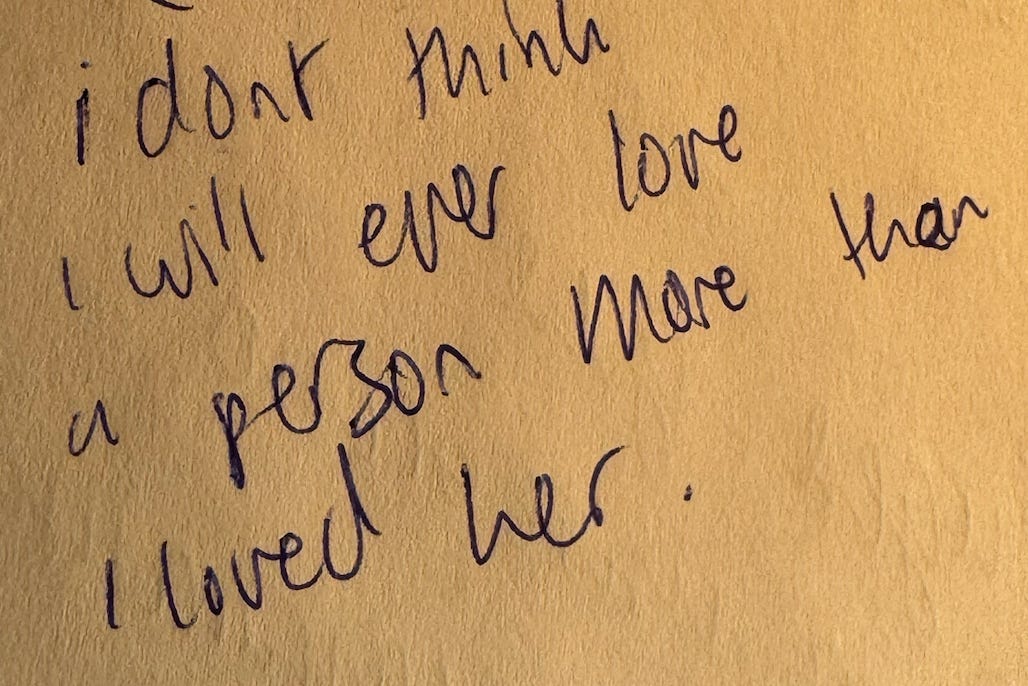 i dont think
i will ever love
a person more than
I loved her.